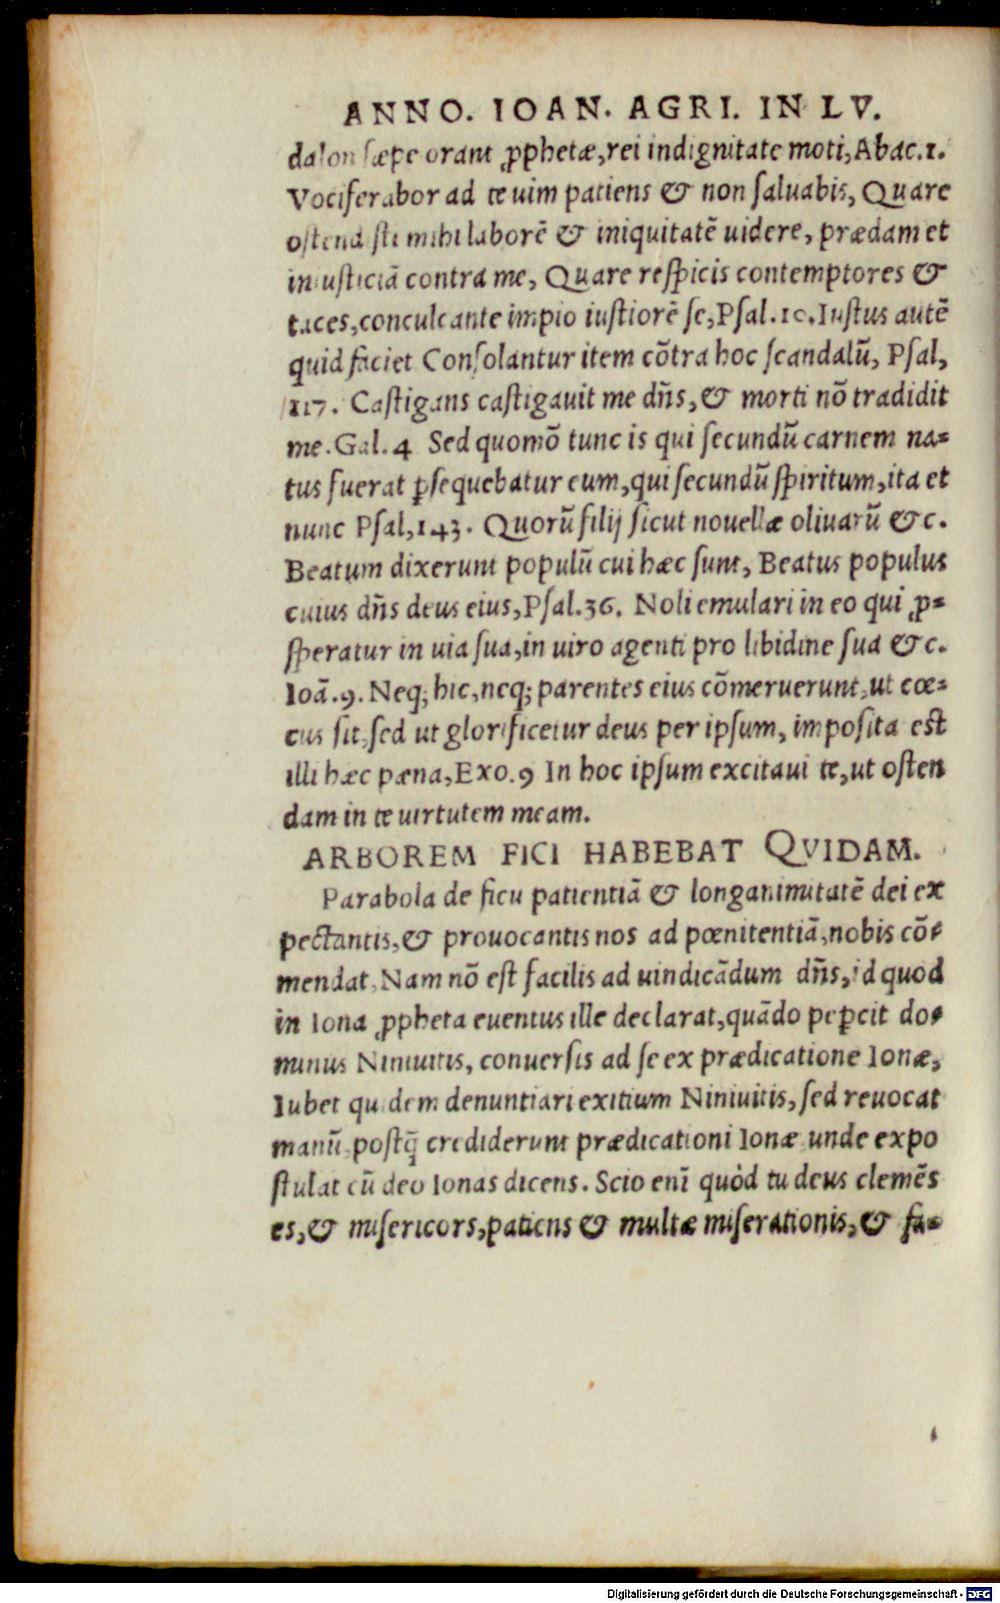 ANNO. IOAN. AGRI. IN LV.
dalon sæpe orant ꝓphetæ, rei indignitate moti, Abac.1.
Vociferabor ad te uim patiens & non saluabis, Quare
ostendisti mihi laborē & iniquitatē uidere, prædam et
iniusticiā contra me, Quare respicis contemptores &
taces, conculcante impio iustiorē se, Psal.10. Iustus autē
quid faciet Consolantur item cōtra hoc scandalū, Psal,
117. Castigans castigauit me dn̄s, & morti nō tradidit
me. Gal.4 Sed quomō tunc is qui secundū carnem na=
tus fuerat ꝑsequebatur eum, qui secundū spiritum, ita et
nunc Psal,143. Quorū filij sicut nouellæ oliuarū &c.
Beatum dixerunt populū cui hæc sunt, Beatus populus
cuius dn̄s deus eius, Psal.36. Noli emulari in eo qui ꝓ=
speratur in uia sua, in uiro agenti pro libidine sua &c.
Ioā.9. Neq; hic, neq; parentes eius cōmeruerunt, ut cœ=
cus sit, sed ut glorificetur deus per ipsum, imposita est
illi hæc pœna, Exo.9 In hoc ipsum excitaui te, ut osten
dam in te uirtutem meam.
ARBOREM FICI HABEBAT QVIDAM.
Parabola de ficu patientiā & longanimitatē dei ex
pectantis, & prouocantis nos ad pœnitentiā, nobis cō=
mendat, Nam nō est facilis ad uindicādum dn̄s, id quod
in Iona ꝓpheta euentus ille declarat, quādo peꝑcit do=
minus Niniuitis, conuersis ad se ex prædicatione Ionæ,
Iubet quidem denuntiari exitium Niniuitis, sed reuocat
manū, postq̄ crediderunt prædicationi Ionæ unde expo
stulat cū deo Ionas dicens. Scio enī quòd tu deus clemēs
es, & misericors, patiens & multæ miserationis, & fa=
Digitalisierung gefördert durch die Deutsche Forschungsgemeinschaft - DFG